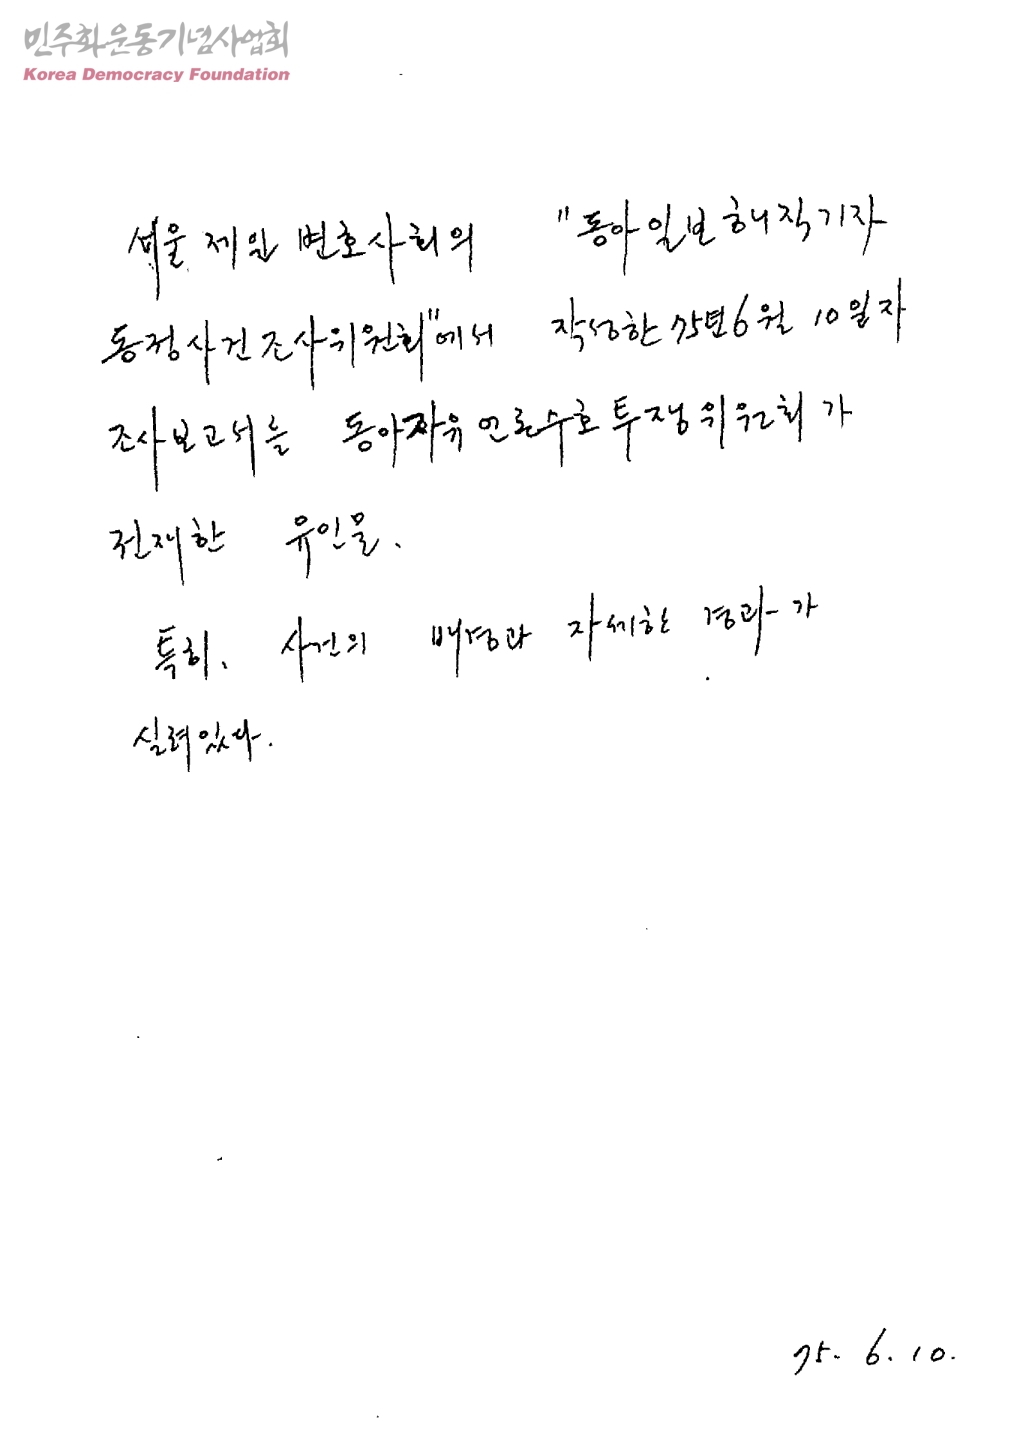 민주화운동기념사업회
Korea Democracy Foundation
서울 제일 변호사회의 "동아일보 해직기자
동정사건조사위원회"에서 작성한 75년 6월 10일자
조사보고서를 동아자유언론수호투쟁위원회가
전재한 유인물.
특히, 사건의 배경과 자세한 경과가
실려있다.
75. 6. 10.